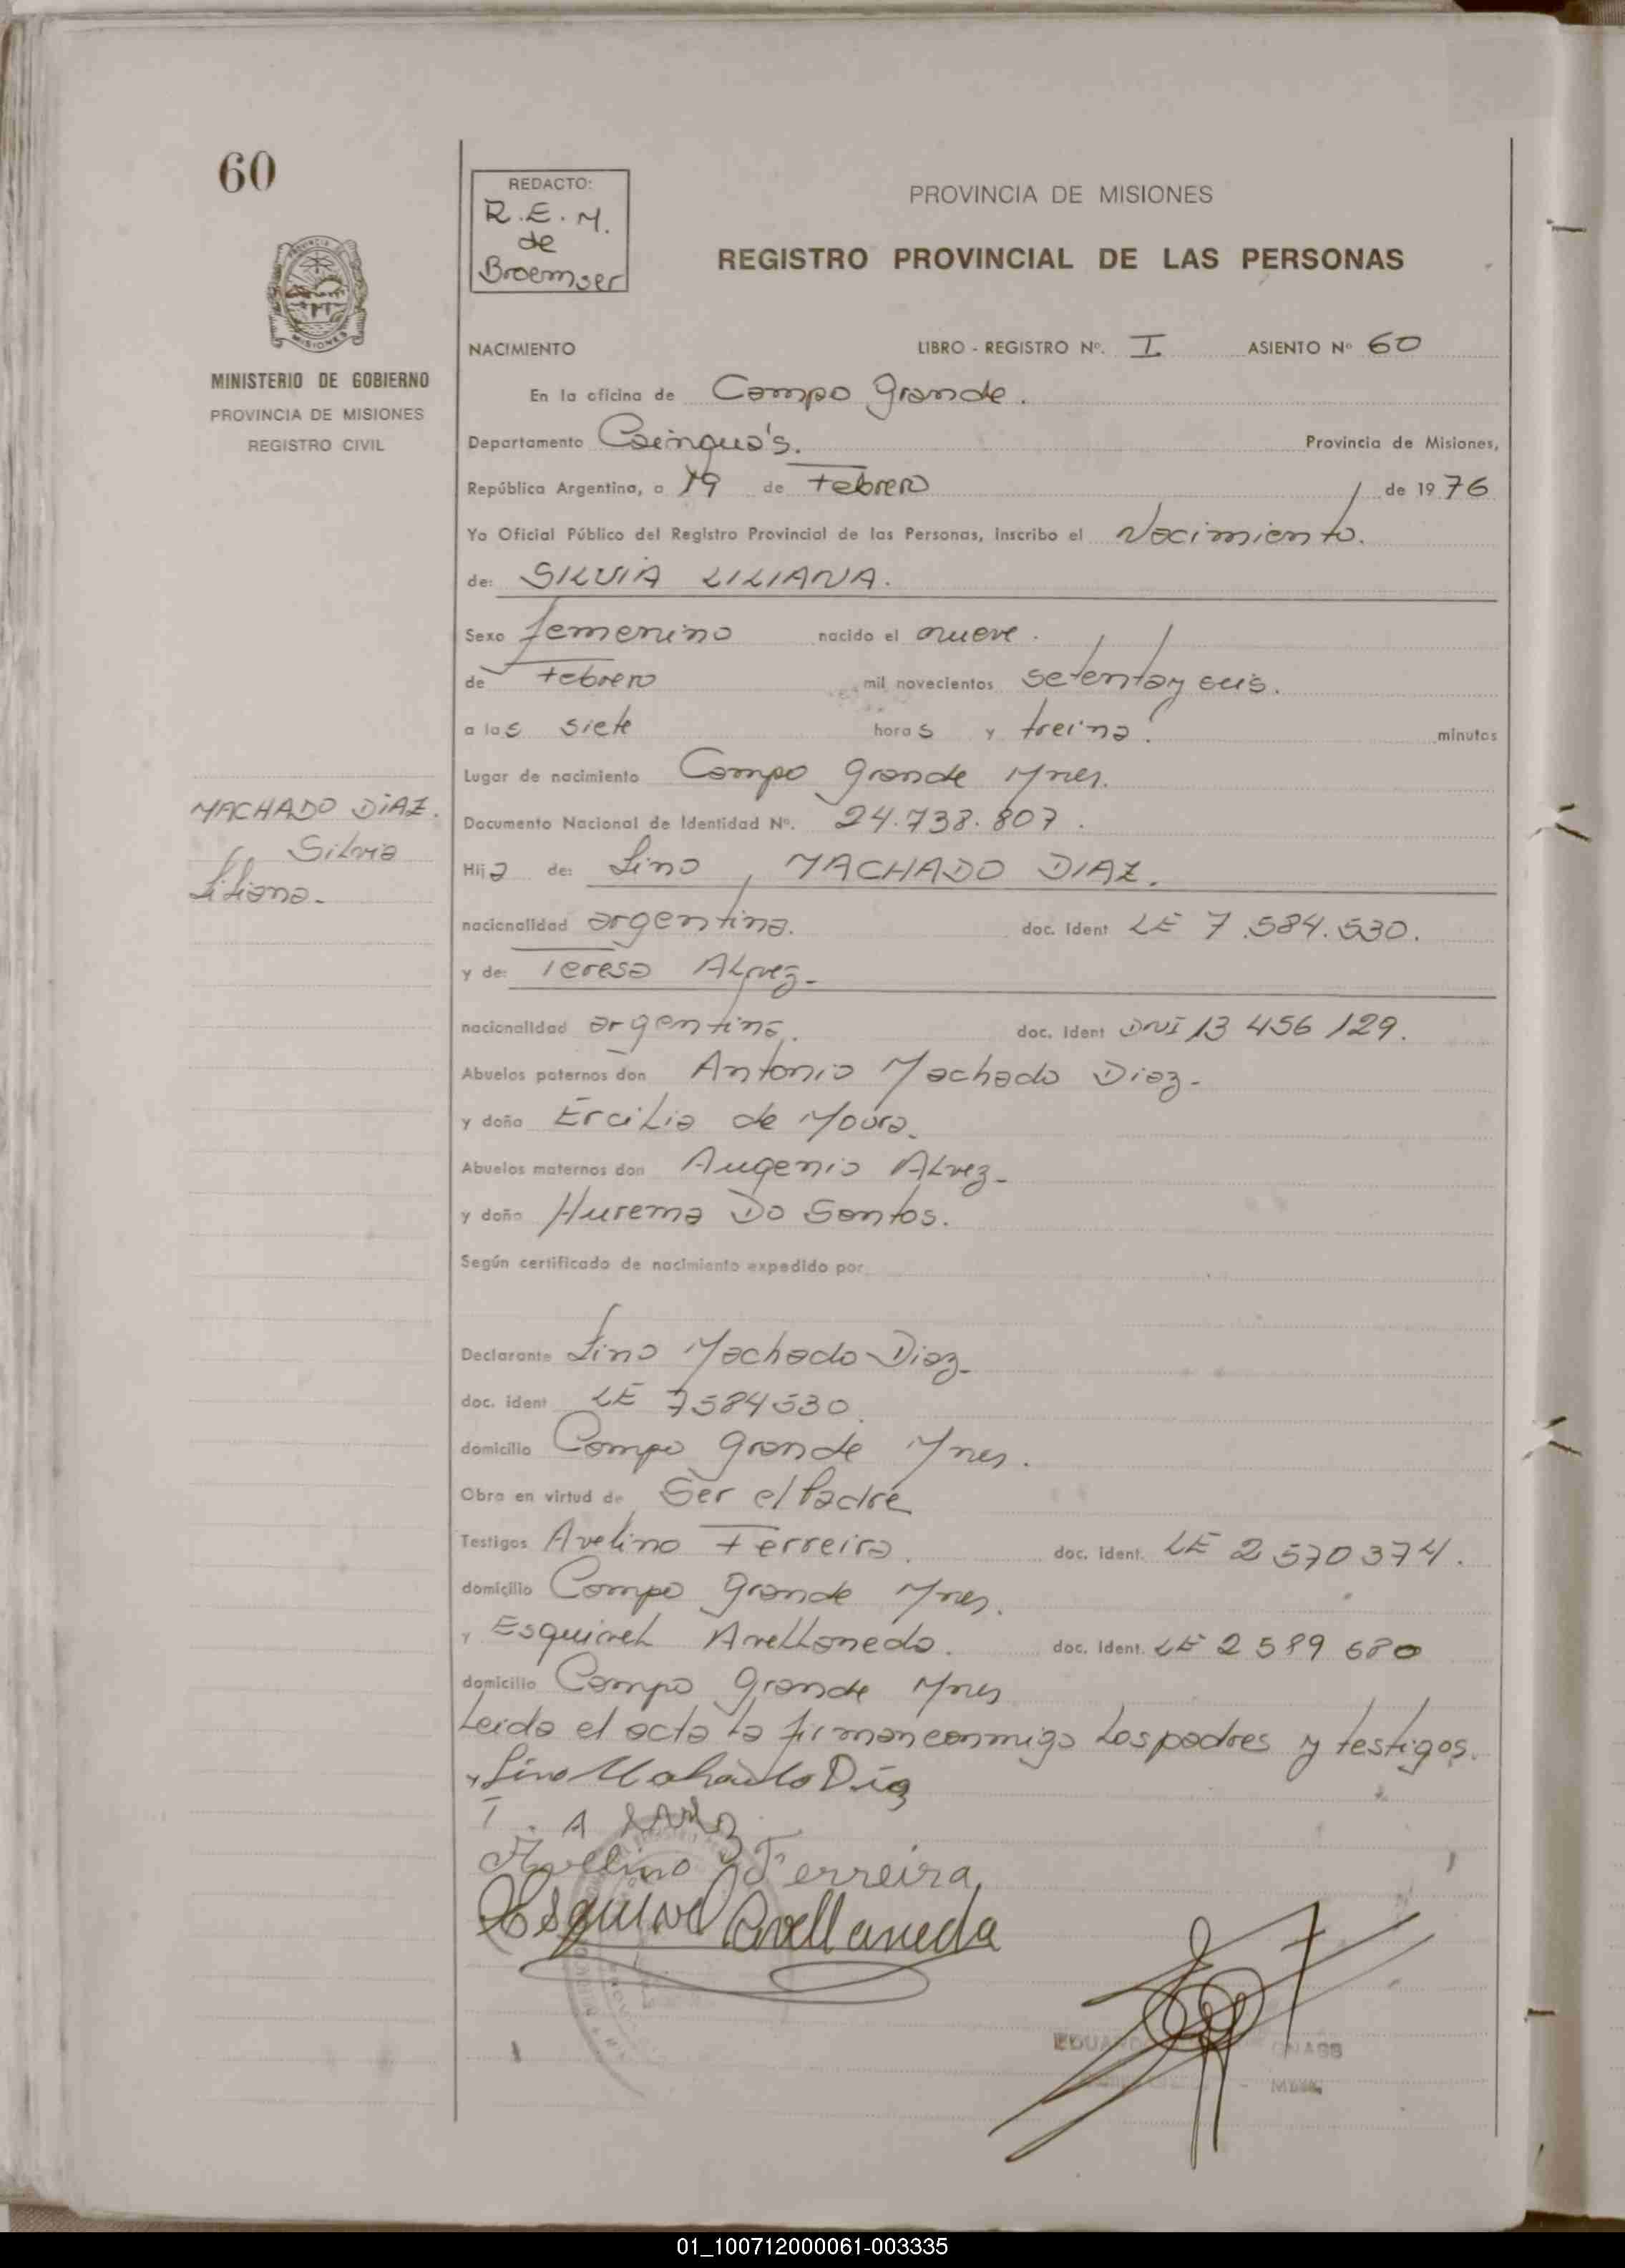 60
REDACTO:
R.E.M.
de
Broemser
PROVINCIA DE MISIONES
REGISTRO PROVINCIAL DE LAS PERSONAS
MINISTERIO DE GOBIERNO
PROVINCIA DE MISIONES
REGISTRO CIVIL
NACIMIENTO LIBRO - REGISTRO Nº. I ASIENTO Nº 60
En la oficina de Campo Grande.
Departamento Cainguá's. Provincia de Misiones,
República Argentina, a 19 de Febrero de 1976
Yo Oficial Público del Registro Provincial de las Personas, inscribo el Nacimiento.
de: SILVIA LILIANA.
Sexo femenino nacido el nueve.
de Febrero mil novecientos setentay seis.
a las siete horas y treina. minutos
Lugar de nacimiento Campo Grande Mnes.
Documento Nacional de Identidad Nº. 24.738.807.
MACHADO DIAZ.
Silvia
Liliana.-
Hija de: Lino, MACHADO DIAZ.
nacionalidad argentina. doc. Ident LE 7.584.530.
y de: Teresa Alvez-
nacionalidad argentina. doc. Ident DNI 13 456 129.
Abuelos paternos don Antonio Machado Diaz-
y doña Ercilia de Moura.
Abuelos maternos don Augenio Alvez-
y doña Hurema Do Santos.
Según certificado de nacimiento expedido por
Declarante Lino Machado Diaz-
doc. ident LE 7584530.
domicilio Campo Grande Mnes.
Obra en virtud de Ser el Padre
Testigos Avelino Ferreira. doc. ident. LE 2570374.
domicilio Campo Grande Mnes.
y Esquivel Avellaneda. doc. Ident. LE 2589680
domicilio Campo Grande Mnes
Leida el acta la firman conmigo los padres y testigos.
Lino Mahado Diaz
T. A
Avelino Ferreira
Esquivel Avellaneda
01_100712000061-003335